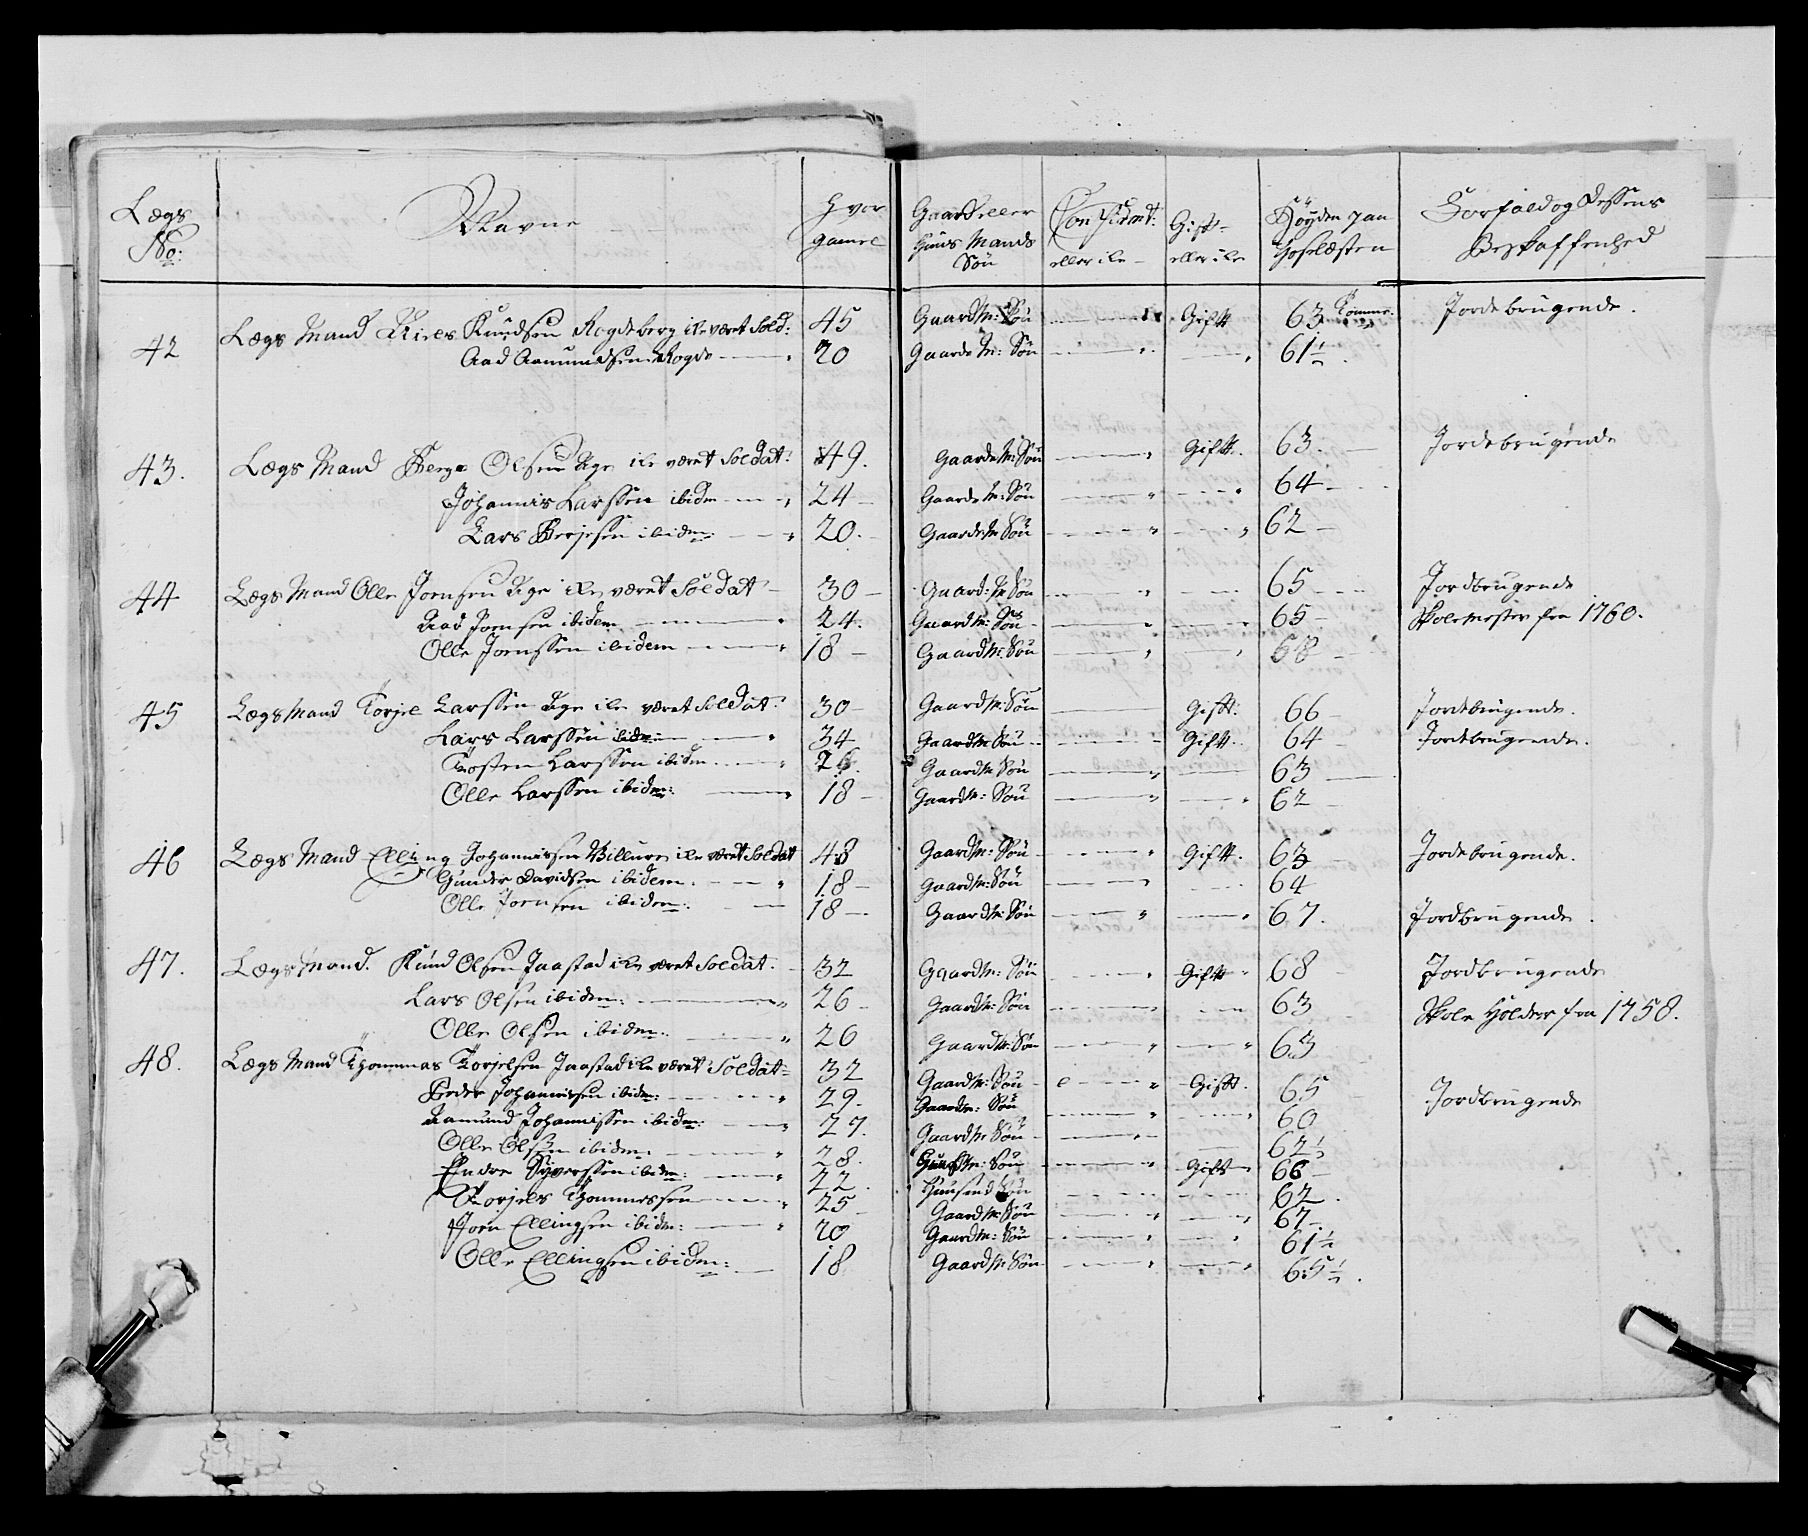 Lægs No: | Navne | Hvor gamel | Gaard eller Huus Mands Søn | Confirmt: eller ike | Gift eller ike | Høyden paa Hoselæsten | Forfald og dessens Beskaffenhed
42 | Lægs Mand Knudsen Rogdeberg ike været Sold: | 45 | Gaardm: Søn | | Gift | 63 Tomme. | Jordebrugende.
Aad Aamundsen Rogde | 20 | Gaards M: Søn | | | 61½
43. | Lægs Mand Berge Olsen Age ike været Soldat: | 49. | Gaards M: Søn | | Gift. | 63. | Jordebrugende
Johannis Larssen ibidm | 24 | Gaards M: Søn | | | 64
Lars Berjesen ibidem: | 20. | Gaards M Søn | | | 62
44 | Lægs Mand Olle Jornsen Age ike været Soldat | 30 | Gaard: M Søn | | | 65 | Jordbrugende
Aad Jornsen ibidem | 24. | Gaardm: Søn | | | 65 | Skolemester fra 1760.
Olle Jornssen ibidem | 18 | Gaardm: Søn | | | 68
45 | Lægs Mand Torjel Larssen Age ike været Soldat: | 30 | Gaardm: Søn | | Gift: | 66 | Jordebrugende.
Lars Larssen ibidm: | 34 | Gaardm Søn | | Gift. | 64 | Jordebrugende.
Tosten Larssen ibidem. | 26. | Gaardm Søn | | | 63
Olle Larssen ibidem: | 18 | Gaardm: Søn | | | 62
46 | Lægs Mand Elling Johannissen Billure ike været Soldat | 48 | Gaardm: Søn | | Gift. | 63 | Jordebrugende.
Gunder Davidsen ibidem. | 18 | Gaardm: Søn | | | 64
Olle Jornsen ibidem: | 18 | Gaardm: Søn | | | 67. | Jordbrugende.
47. | Lægs Mand. Knud Olsen Jaastad ike været Soldat. | 32 | Gaardm: Søn | | Gift | 68 | Jordbrugende
Lars Olsen ibidem: | 26 | Gaardm: Søn | | | 63 | Skole Holder fra 1758.
Olle Olsen ibidem: | 26 | Gaardm: Søn | | | 63
48. | Lægs Mand Thommas Torjelsen Jaastad ike været Soldat | 32 | Gaardm: Søn | | Gift. | 65 | Jordbrugende
Peder Johannissen ibidm: | 29. | Gaardm: Søn | | | 60
Aamund Johannissen ibidm: | 27. | Gaardm Søn | | | 62½
Olle Olsen ibidem: | 28. | Gaardm: Søn | | Gift | 66
Endre Siverssen ibidm: | 22. | Søn | | | 62.
Torjels Thommessen | 25 | Gaardm: Søn | | | 67
Jorn Ellingsen ibidm: | 20 | Gaardm: Søn | | | 61½
Olle Ellingsen ibidem: | 18 | Gaardm: Søn | | | 65½.